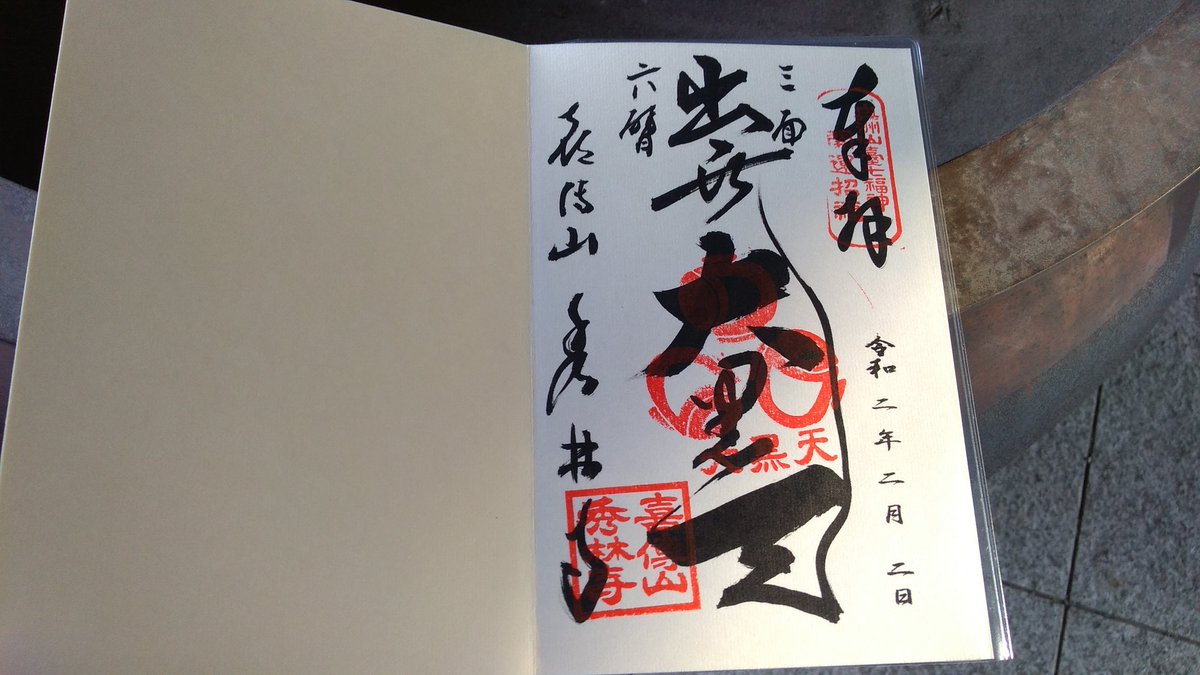 奉拝
奥州仙臺七福神
開運招福
令和二年二月二日
三面
六臂
出世大黒天
大黒天
喜傳山 秀林寺
喜傳山
秀林寺